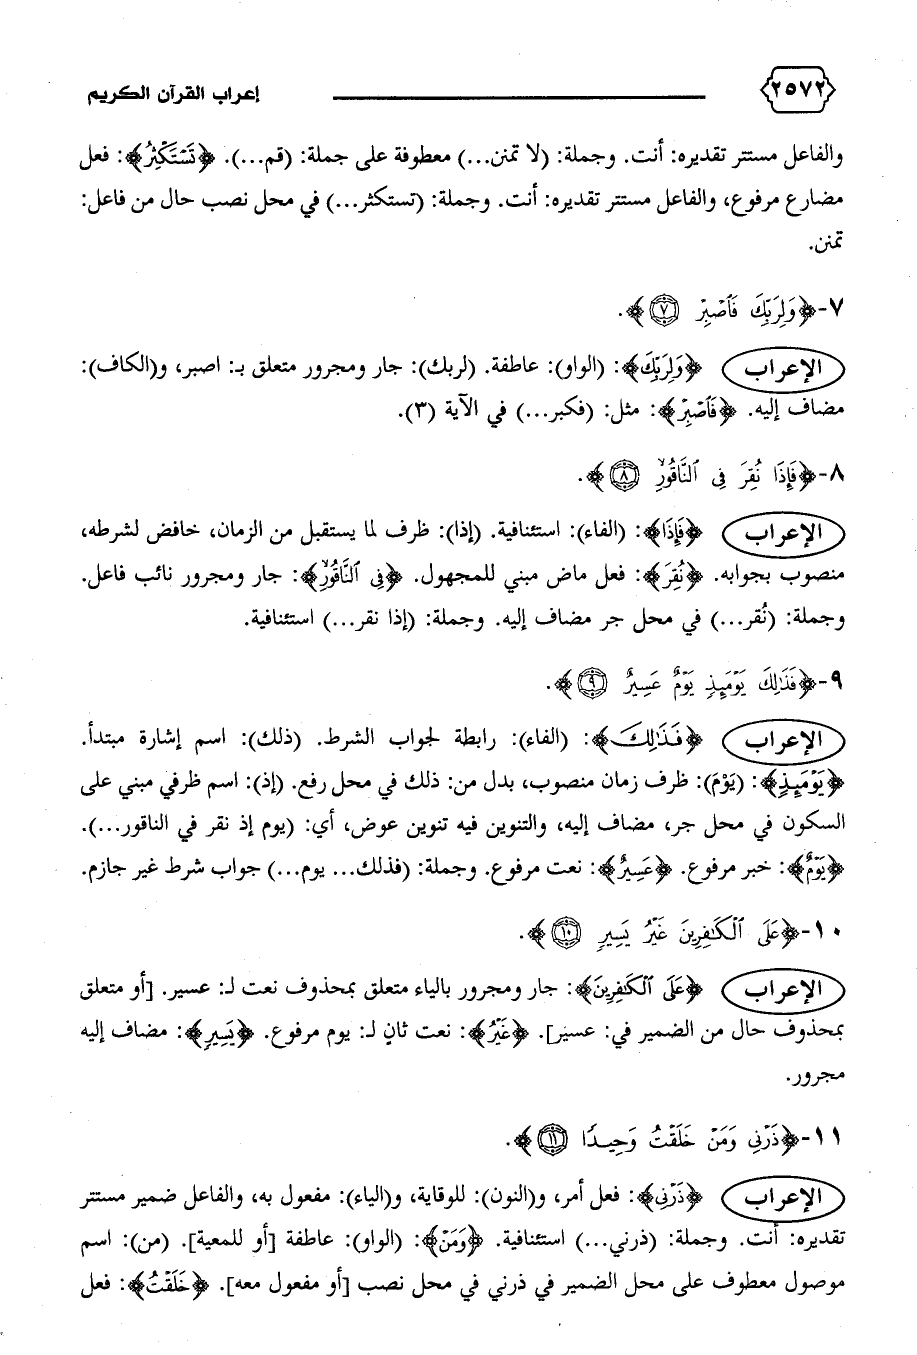 ٢٥٧٢ إعراب القرآن الكريم
والفاعل مستتر تقديره: أنت. وجملة: (لا تمنن...) معطوفة على جملة: (قم...). ﴿تَسْتَكْثِرُ﴾: فعل
مضارع مرفوع، والفاعل مستتر تقديره: أنت. وجملة: (تستكثر...) في محل نصب حال من فاعل:
تمنن.
٧-﴿وَلِرَبِّكَ فَٱصْبِرْ ٧﴾.
الإعراب ﴿وَلِرَبِّكَ﴾: (الواو): عاطفة. (لربك): جار ومجرور متعلق بـ: اصبر، و(الكاف):
مضاف إليه. ﴿فَٱصْبِرْ﴾: مثل: (فكبر...) في الآية (٣).
٨-﴿فَإِذَا نُقِرَ فِى ٱلنَّاقُورِ ٨﴾.
الإعراب ﴿فَإِذَا﴾: (الفاء): استئنافية. (إذا): ظرف لما يستقبل من الزمان، خافض لشرطه،
منصوب بجوابه. ﴿نُقِرَ﴾: فعل ماض مبني للمجهول. ﴿فِى ٱلنَّاقُورِ﴾: جار ومجرور نائب فاعل.
وجملة: (نُقر...) في محل جر مضاف إليه. وجملة: (إذا نقر...) استئنافية.
٩-﴿فَذَٰلِكَ يَوْمَئِذٍ يَوْمٌ عَسِيرٌ ٩﴾.
الإعراب ﴿فَذَٰلِكَ﴾: (الفاء): رابطة لجواب الشرط. (ذلك): اسم إشارة مبتدأ.
﴿يَوْمَئِذٍ﴾: (يَوْمَ): ظرف زمان منصوب، بدل من: ذلك في محل رفع. (إذ): اسم ظرفي مبني على
السكون في محل جر، مضاف إليه، والتنوين فيه تنوين عوض، أي: (يوم إذ نقر في الناقور...).
﴿يَوْمٌ﴾: خبر مرفوع. ﴿عَسِيرٌ﴾: نعت مرفوع. وجملة: (فذلك... يوم...) جواب شرط غير جازم.
١٠-﴿عَلَى ٱلْكَٰفِرِينَ غَيْرُ يَسِيرٍ ١٠﴾.
الإعراب ﴿عَلَى ٱلْكَٰفِرِينَ﴾: جار ومجرور بالياء متعلق بمحذوف نعت لـ: عسير. [أو متعلق
بمحذوف حال من الضمير في: عسير]. ﴿غَيْرُ﴾: نعت ثانٍ لـ: يوم مرفوع. ﴿يَسِيرٍ﴾: مضاف إليه
مجرور.
١١-﴿ذَرْنِى وَمَنْ خَلَقْتُ وَحِيدًا ١١﴾.
الإعراب ﴿ذَرْنِى﴾: فعل أمر، و(النون): للوقاية، و(الياء): مفعول به، والفاعل ضمير مستتر
تقديره: أنت. وجملة: (ذرني...) استئنافية. ﴿وَمَنْ﴾: (الواو): عاطفة [أو للمعية]. (من): اسم
موصول معطوف على محل الضمير في ذرني في محل نصب [أو مفعول معه]. ﴿خَلَقْتُ﴾: فعل